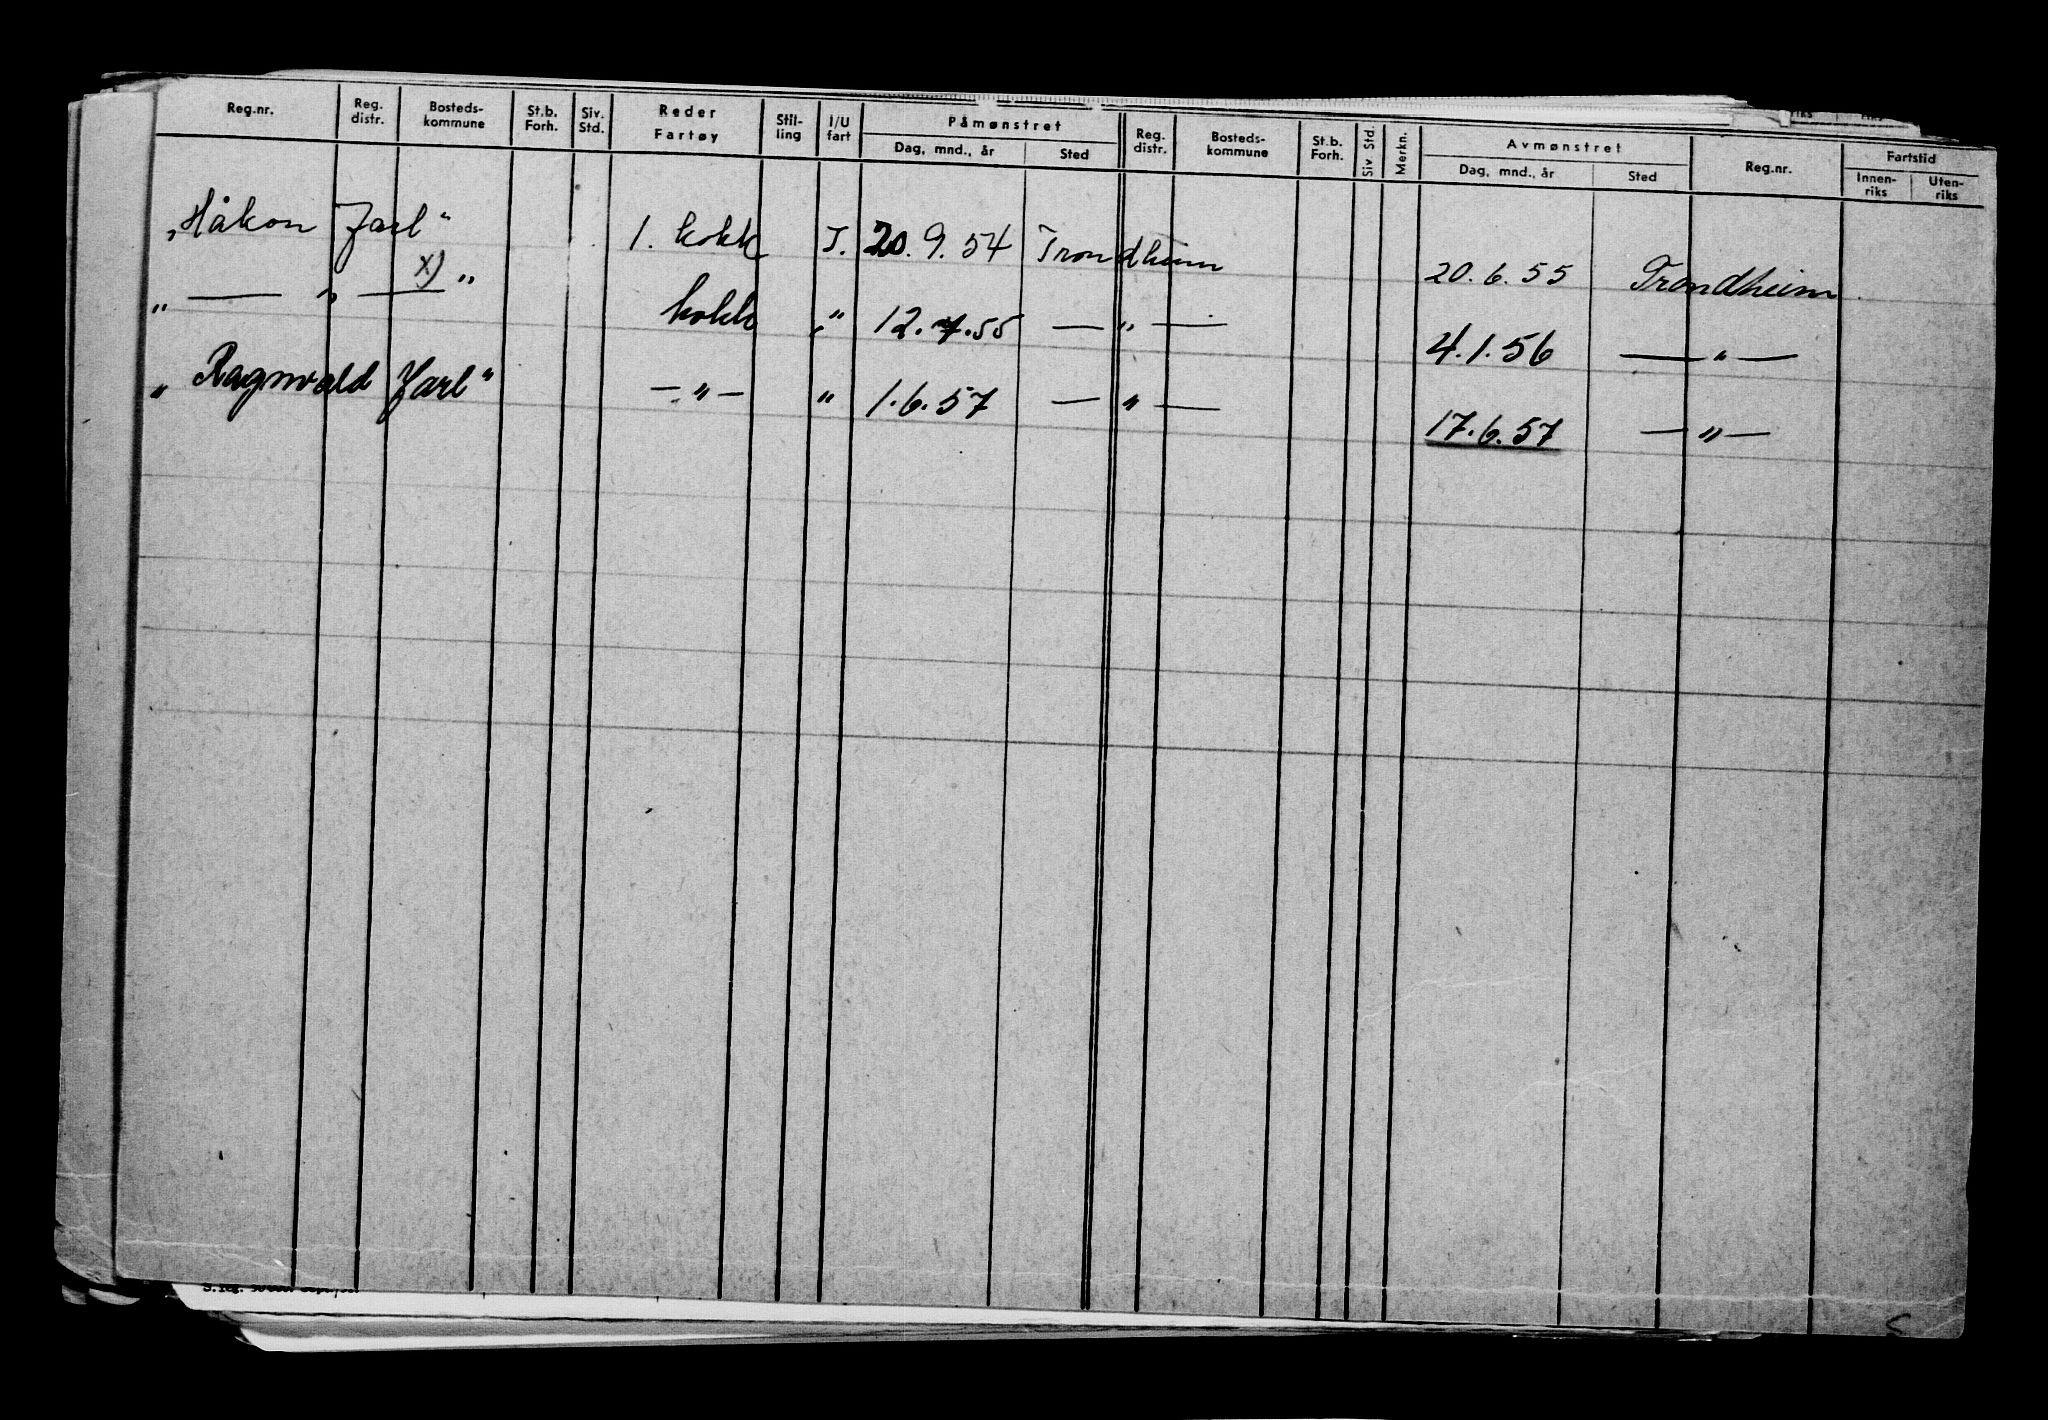 Reg.nr. Reg. distr. Bosteds-kommune St.b. Forh. Siv. Std. Reder Fartøy Stil-ling I/U fart Påmønstret Dag, mnd., år Sted Reg. distr. Bosteds-kommune St.b. Forh. Siv. Std. Merkn. Avmønstret Dag, mnd., år Sted Reg.nr. Fartstid Innen-riks Uten-riks
„Håkon Jarl" 1. kokk I. 20.9.54 Trondheim 20.6.55 Trondheim
„ — „ — x) " kokk „ 12.7.55 — „ — 4.1.56 — „ —
„Ragnvald Jarl" — „ — „ 1.6.57 — „ — 17.6.57 — „ —